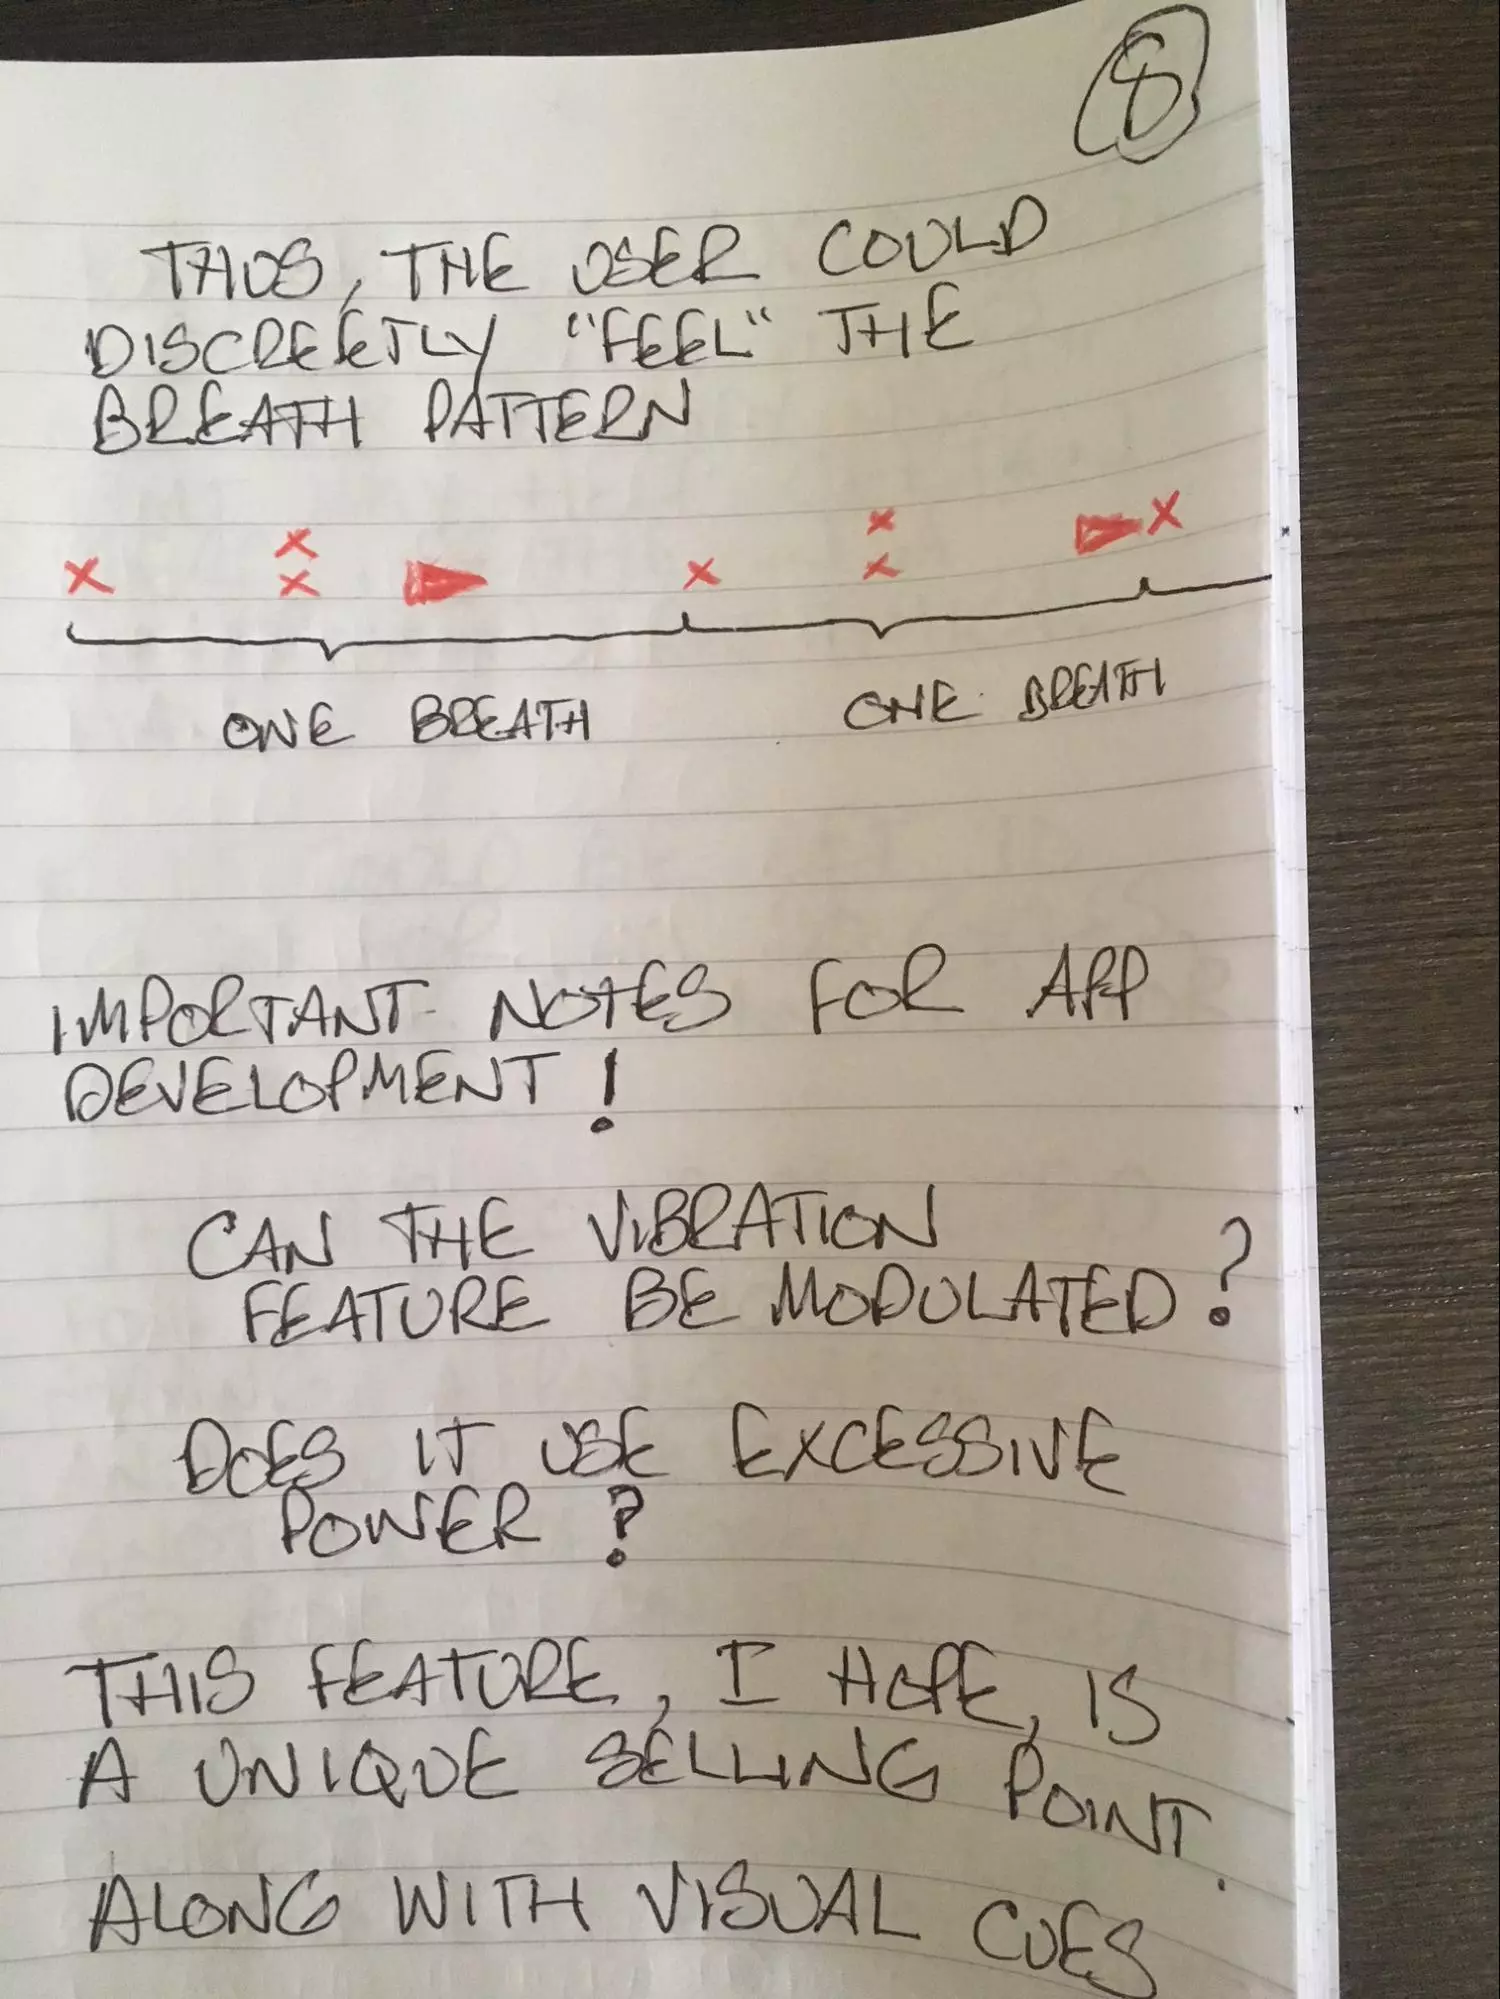 8
THUS, THE USER COULD
DISCREETLY "FEEL" THE
BREATH PATTERN
x x x x x x x
ONE BREATH ONE BREATH
IMPORTANT NOTES FOR APP
DEVELOPMENT!
CAN THE VIBRATION
FEATURE BE MODULATED?
DOES IT USE EXCESSIVE
POWER?
THIS FEATURE, I HOPE, IS
A UNIQUE SELLING POINT.
ALONG WITH VISUAL CUES